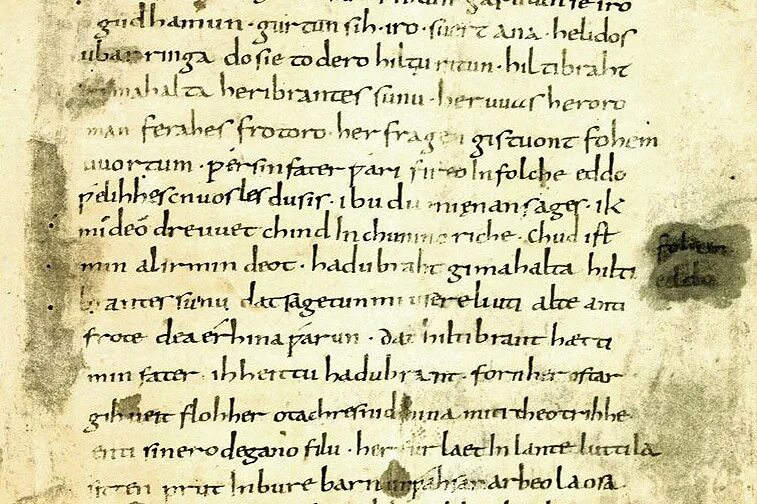 garutun se iro
gudhamun · gurtun sih · iro · suert ana · helidos
ubar ringa do sie to dero hiltu ritun · hiltibraht
gimahalta heribrantes sunu · her uuas heroro
man ferahes frotoro · her fragen gistuont fohem
uuortum · ƿer sin fater ƿari fireo In folche eddo
ƿelihhes cnuosles du sis · ibu du mi enan sages · ik
mi deo dre uuet chind In chuninc riche · chud ist
min al irmin deot · hadubraht gimahalta hilti
brantes sunu dat sagetun mi usere liuti alte anti
frote dea érhina ƿarun · dat hiltibrant hætti
min fater · ih heittu hadubrant · forn her ostar
gihueit floh her otachres nid hina miti theotrihhe
enti sinero degano filu · her fur laet In lante luttila
sitten prut In bure barn unƿahsan arbeo laosa
fohem
eddo